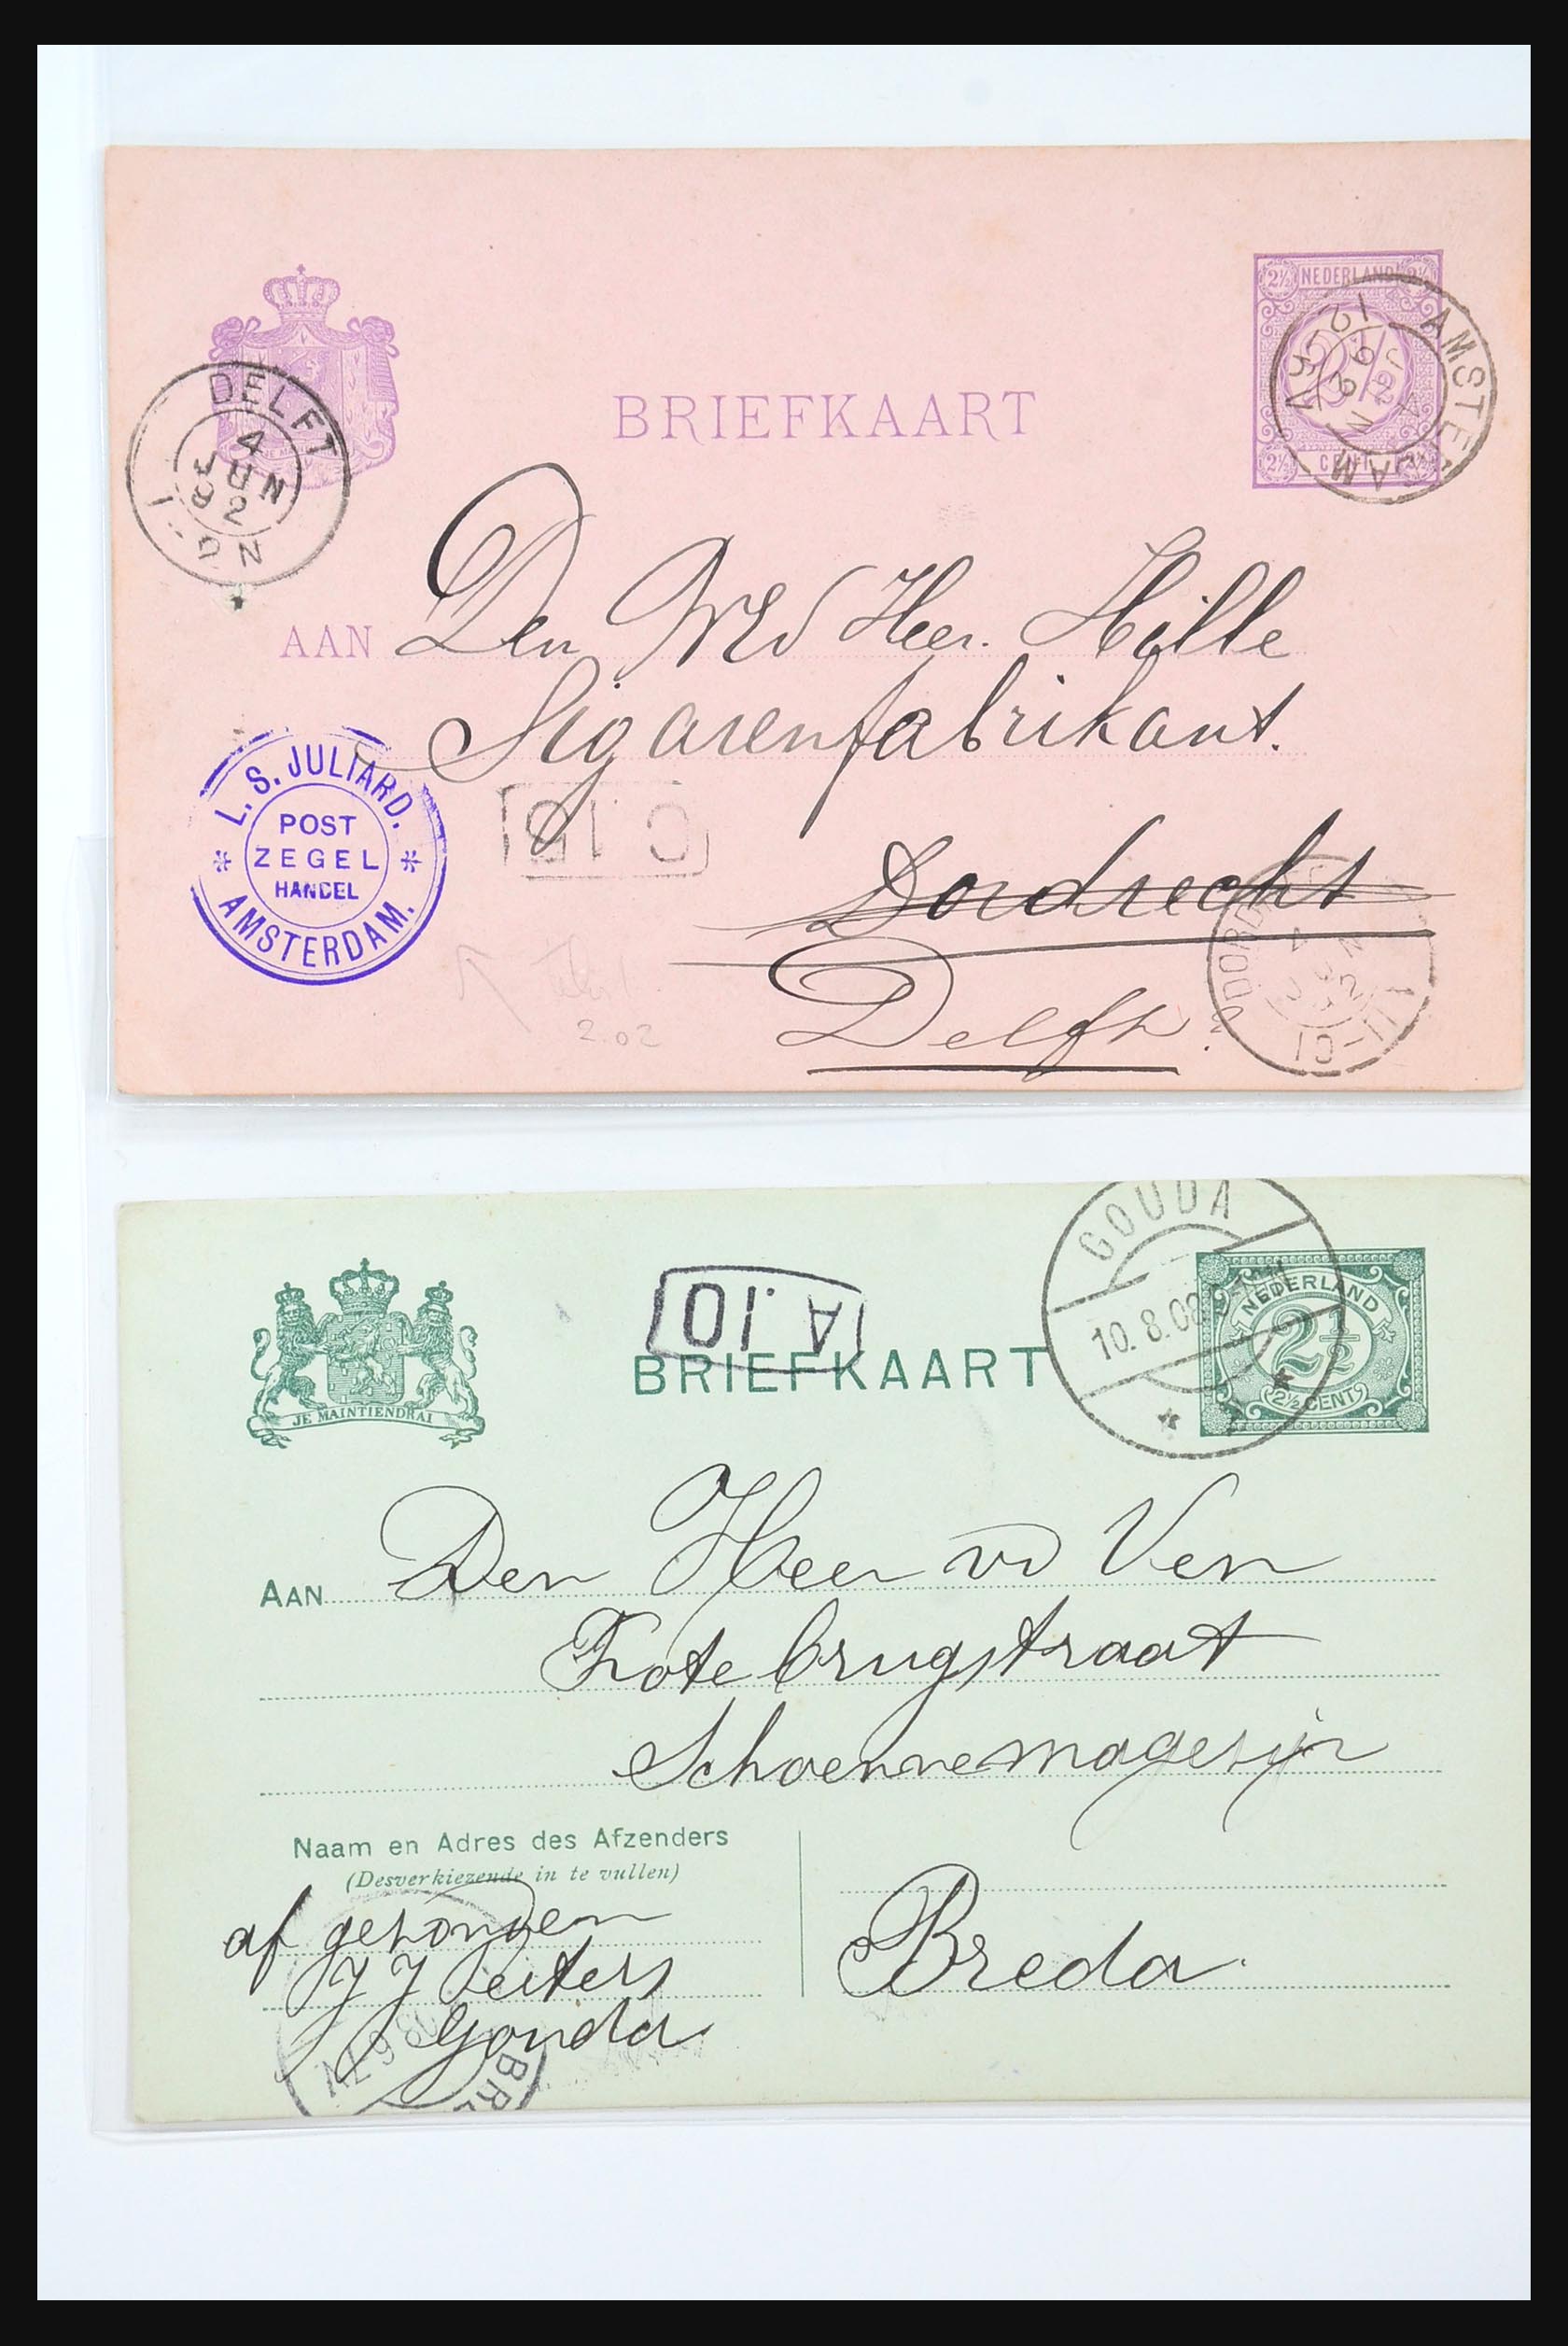 2½ NEDERLAND 2½
CENT
AMSTERDAM
4 JUN 92
DELFT
4
JUN
92
1-2N
BRIEFKAART
AAN Den WEd Heer. Hille
Sigarenfabrikant.
Dordrecht
Delft.
L. S. JULIARD.
POST
ZEGEL
HANDEL
AMSTERDAM.
2.02
DORD
10-11
GOUDA
10.8.08
A.10
NEDERLAND
2½
2½ CENT
JE MAINTIENDRAI
BRIEFKAART
AAN Den Heer vd Ven
brugstraat
Schoennemagesijn
Naam en Adres des Afzenders
(Desverkiezende in te vullen)
af gezonden
J J Peiters
Gouda
Breda.
BR